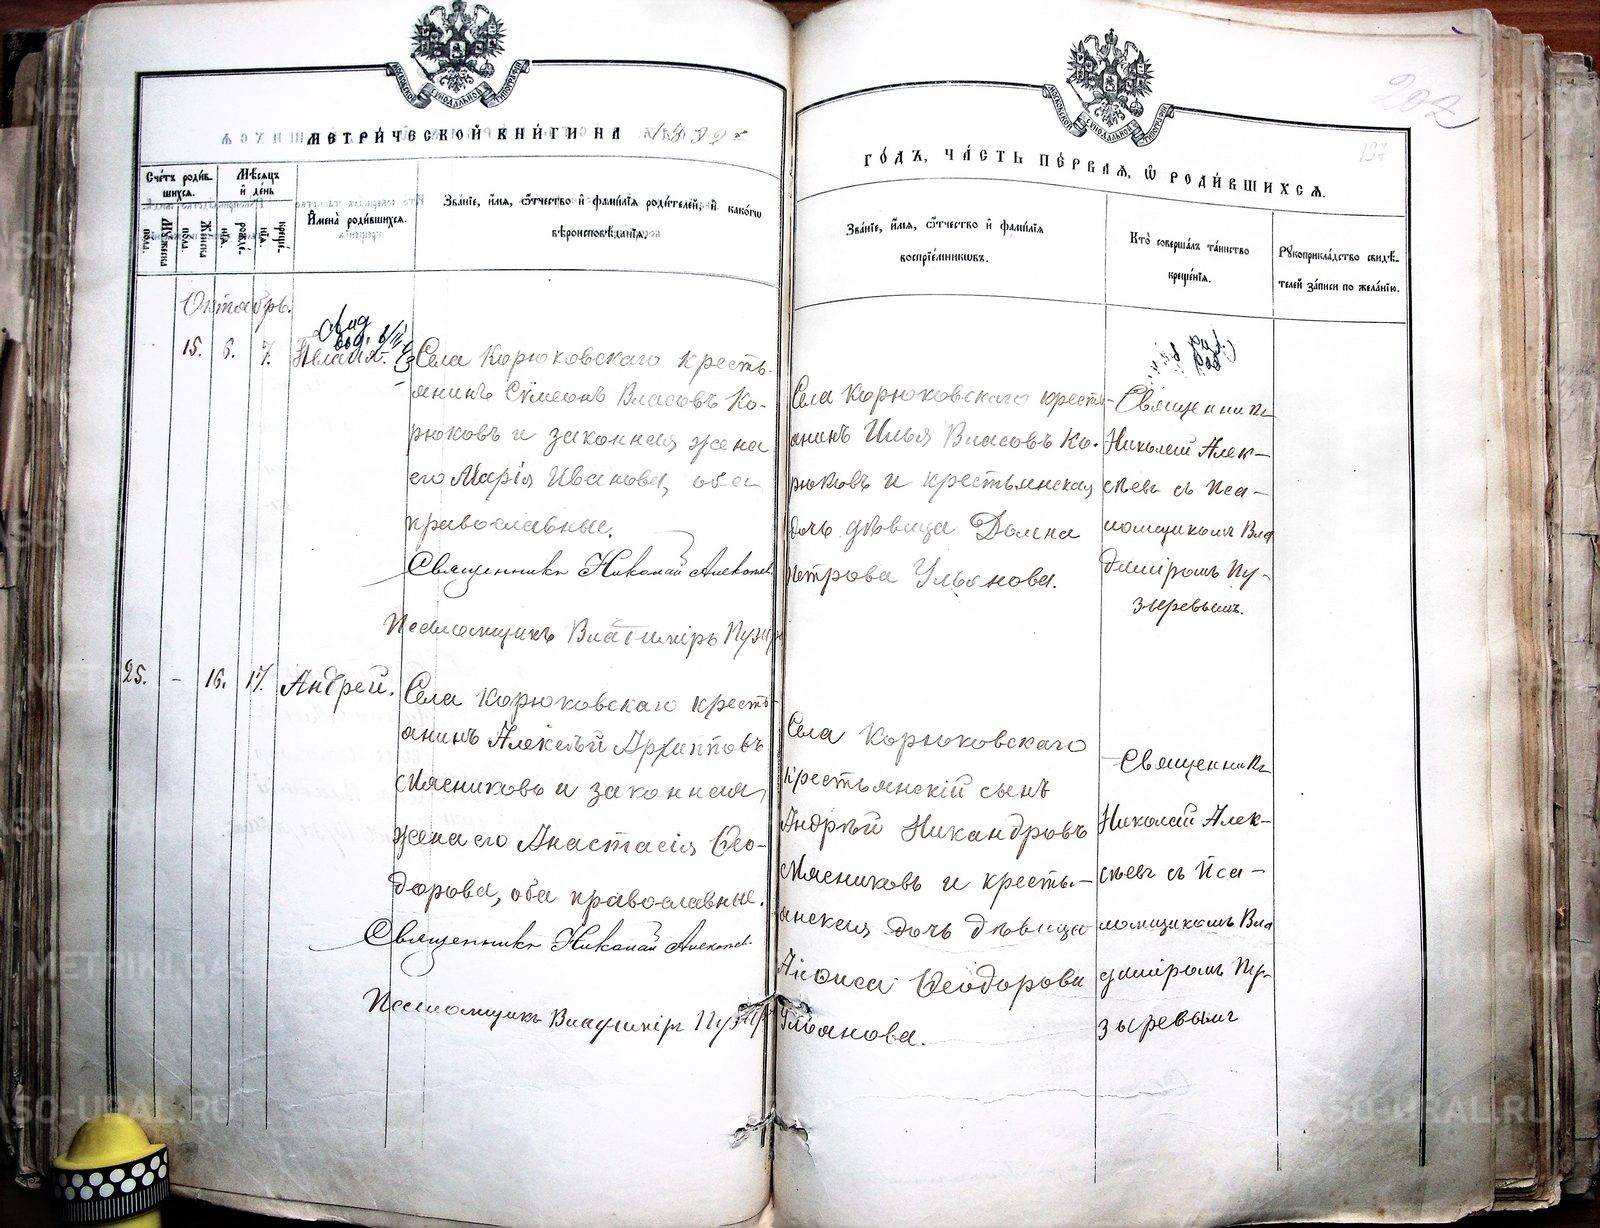 МОСКОВСКОЙ СѴНОДАЛЬНОЙ ТИПОГРАФІИ
МОСКОВСКОЙ СѴНОДАЛЬНОЙ ТИПОГРАФІИ
202
197
МЕТРИ́ЧЕСКОЙ КНИ́ГИ НА
ГО́ДЪ, ЧА́СТЬ ПЕ́РВАЯ, Ѡ РОДИ́ВШИХСЯ.
Сче́тъ роди́в-
шихся.
Мѣ́сяцъ
и де́нь
Му́жеска
пола.
Же́нска
пола.
рожде́-
нїя.
креще́-
нїя.
Имена̀ роди́вшихся.
Зва́нїе, и́мя, ѻ́тчество и фами́лїя роди́телей, и како́гѡ
вѣроисповѣ́данїя.
Зва́нїе, и́мя, ѻ́тчество и фами́лїя
воспрїе́мникѡвъ.
Кто̀ соверша́лъ та́инство
креще́нїя.
Рꙋкоприкла́дство свидѣ́-
телей за́писи по жела́нїю.
Октябрь.
15. 6. 7. Пелагія.
Села Корюковскаго кресть-
янинъ Сѵмеонъ Власовъ Ко-
рюковъ и законная жена
его Марія Иванова, оба
православные.
Священникъ Николай Алексѣев
Псаломщикъ Владиміръ Пузыр
Села Корюковскаго кресть-
янинъ Илья Власовъ Ко-
рюковъ и крестьянская
дочь дѣвица Домна
Петрова Ульянова.
Священникъ
Николай Алек-
сѣевъ съ Пса-
ломщикомъ Вла
диміромъ Пу-
зыревымъ.
25. - 16. 17. Андрей.
Села Корюковскаго кресть-
янинъ Алексѣй Архипповъ
Мясниковъ и законная
жена его Анастасія Ѳео-
дорова, оба православные.
Священникъ Николай Алексѣев
Псаломщикъ Владиміръ Пузыр
Села Корюковскаго
крестьянскій сынъ
Андрѣй Никандровъ
Мясниковъ и кресть-
янская дочь дѣвица
Ѳеодорова
Ульянова.
Священникъ
Николай Алек-
сѣевъ съ Пса-
ломщикомъ Вла
диміромъ Пу-
зыревымъ